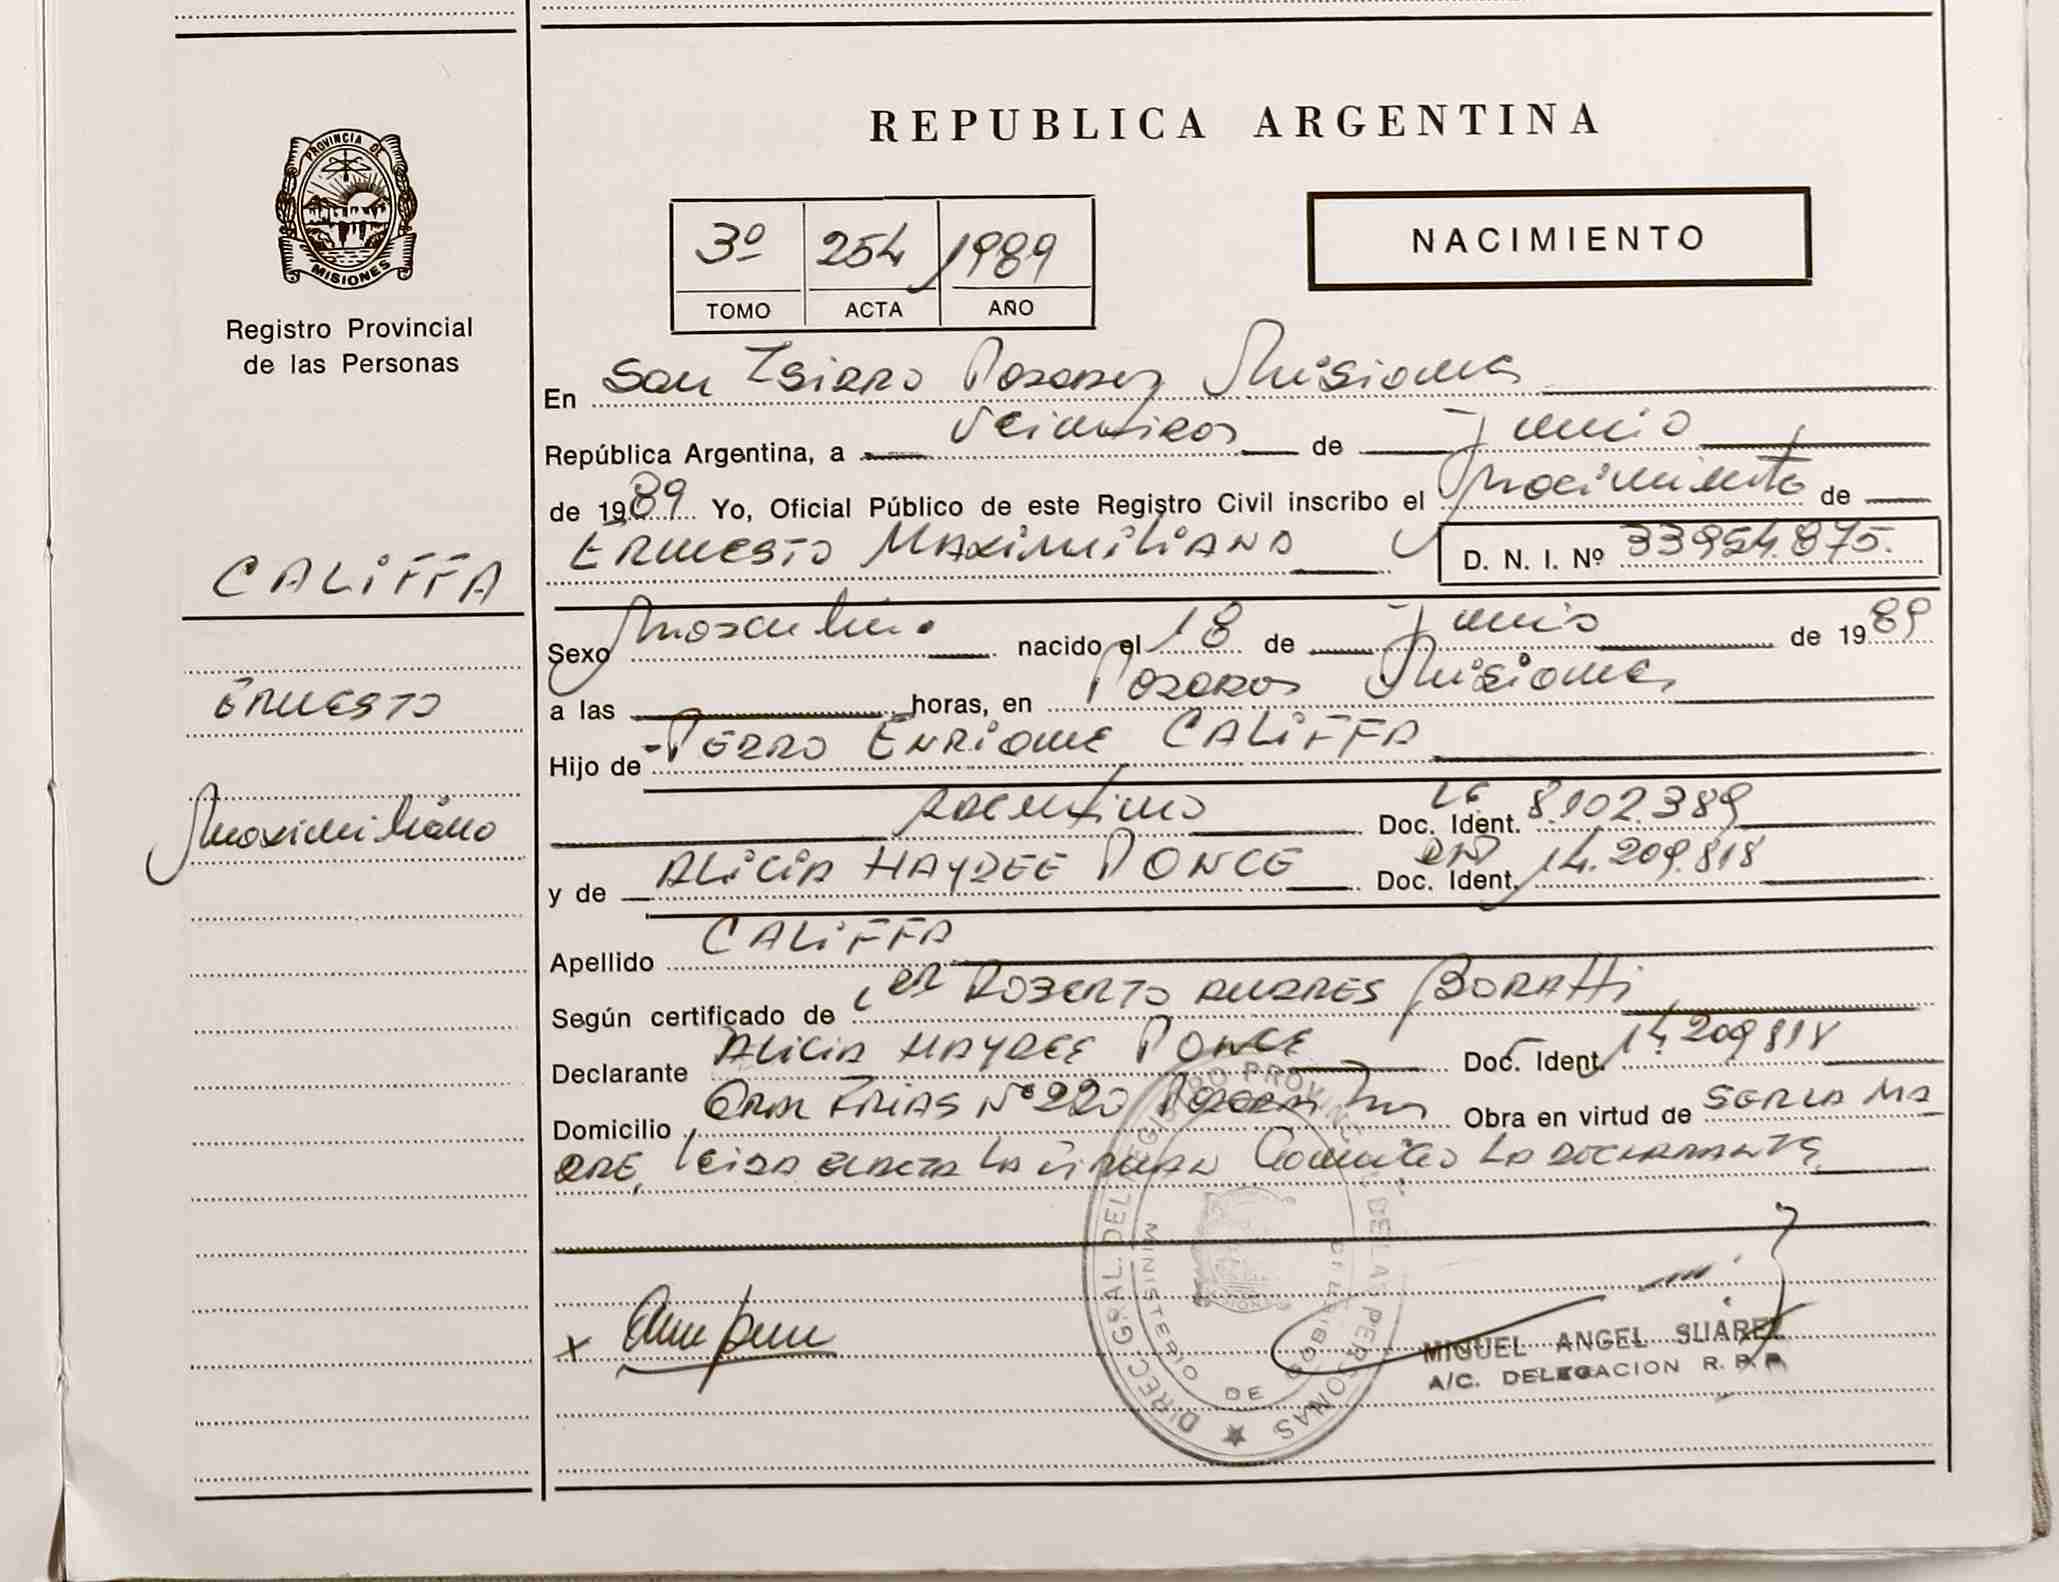 PROVINCIA DE
MISIONES
Registro Provincial
de las Personas
CALIFFA
ERNESTO
Maximiliano
REPUBLICA ARGENTINA
3º 254 1989
TOMO ACTA AÑO
NACIMIENTO
En San Isidro Posadas Misiones
República Argentina, a veintidos de Junio
de 1989 Yo, Oficial Público de este Registro Civil inscribo el Nacimiento de
ERNESTO MAXIMILIANO D. N. I. Nº 33954.875.
Sexo Masculino nacido el 18 de Junio de 1989
a las horas, en Posadas Misiones
Hijo de PEDRO ENRIQUE CALIFFA
ARGENTINO Doc. Ident. LE 8.102.389
y de ALICIA HAYDEE PONCE Doc. Ident. DNI 14.209.818
Apellido CALIFFA
Según certificado de ROBERTO ANDRES BORATTI
Declarante ALICIA HAYDEE PONCE Doc. Ident. 14.209818
Domicilio FRIAS Nº 220 Posadas Obra en virtud de SER LA MA
DRE, Leida el acta la firman conmigo LA DECLARANTE
DIREC. GRAL. DEL REGISTRO PROVINCIAL DE LAS PERSONAS
MINISTERIO DE GOBIERNO
MIGUEL ANGEL SUAREZ
A/C. DELEGACION R. P. P.